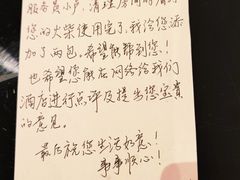 服务员小卢，清理房间时发现
您的火柴使用完了，我给您添
加了两包，希望能帮到您！
也希望您能在网络给我们
酒店进行点评及提出您宝贵
的意见。
最后祝您生活如意！
事事顺心！